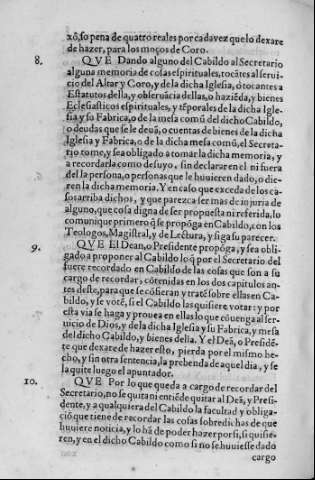 xô, so pena de quatro reales por cada vez que lo dexare
de hazer, para los moços de Coro.
8. QVE Dando alguno del Cabildo al Secretario
alguna memoria de cosas espirituales, tocâtes al serui-
cio del Altar y Coro, y de la dicha Iglesia, ò tocantes a
Estatutos della, y obseruâcia dellas, o haziêda, y bienes
Eclesiasticos espirituales, y têporales de la dicha Igle-
sia y su Fabrica, o de la mesa comũ del dicho Cabildo,
o deudas que se le deuâ, o cuentas de bienes de la dicha
Iglesia y Fabrica, o de la dicha mesa comũ, el Secreta-
rio tome, y sea obligado a tomar la dicha memoria, y
a recordarla como de suyo, sin declarar en el ni fuera
del la persona, o personas que le huuieren dado, o die-
ren la dicha memoria. Y en caso que exceda de los ca-
sos arriba dichos, y que parezca ser mas de injuria de
alguno, que cosa digna de ser propuesta ni referida, lo
comunique primero q̃ se propôga en Cabildo, con los
Teologos, Magistral, y de Lectura, y siga su parecer.
9. QVE El Dean, o Presidente propôga, y sea obli-
gado a proponer al Cabildo lo q̃ por el Secretario del
fuere recordado en Cabildo de las cosas que son a su
cargo de recordar; côtenidas en los dos capitulos an-
tes deste, para que se côfieran y tratê sobre ellas en Ca-
bildo, y se votê, si el Cabildo las quisiere votar: y por
esta via se haga y prouea en ellas lo que côuenga al ser-
uicio de Dios, y de la dicha Iglesia y su Fabrica, y mesa
del dicho Cabildo, y bienes della. Y el Deâ, o Presidê-
te que dexare de hazer esto, pierda por el mismo he-
cho, y sin otra sentencia, la prebenda de aquel dia, y se
la quite luego el apuntador.
10. QVE Por lo que queda a cargo de recordar del
Secretario, no se quita ni entiêde quitar al Deâ, y Presi-
dente, y a qualquiera del Cabildo la facultad y obliga-
ciô que tiene de recordar las cosas sobredichas de que
huuiere noticia, y lo hâ de poder hazer por si, si quisie-
ren, y en el dicho Cabildo como si no se huuiesse dado
cargo